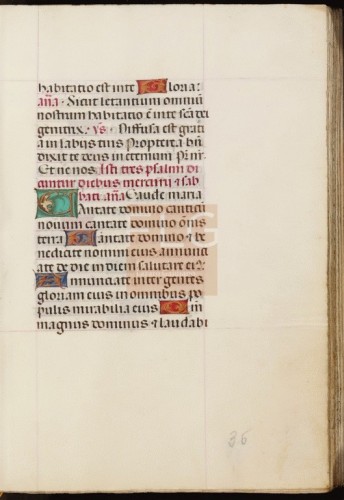 habitatio est in te Gloria:
an̄a · Sicut letantium omniū
nostrum habitatio ē in te sc̄a dei
genitrix. v̄s · Diffusa est grati
a in labiis tuis Propterea bn̄
dixit te deus in eternum Pr̄ nr̄.
Et ne nos Isti tres psalmi di
cuntur diebus mercurii et sab
bati an̄a Gaude maria
Cantate domino canticū
novum cantate domino ōnis
terra Cantate domino et be
nedicite nomini eius annunci
ate de die in diem salutare ei9
Annunciate inter gentes
gloriam eius in omnibus po
pulis mirabilia eius Qm̄
magnus dominus et laudabi
36